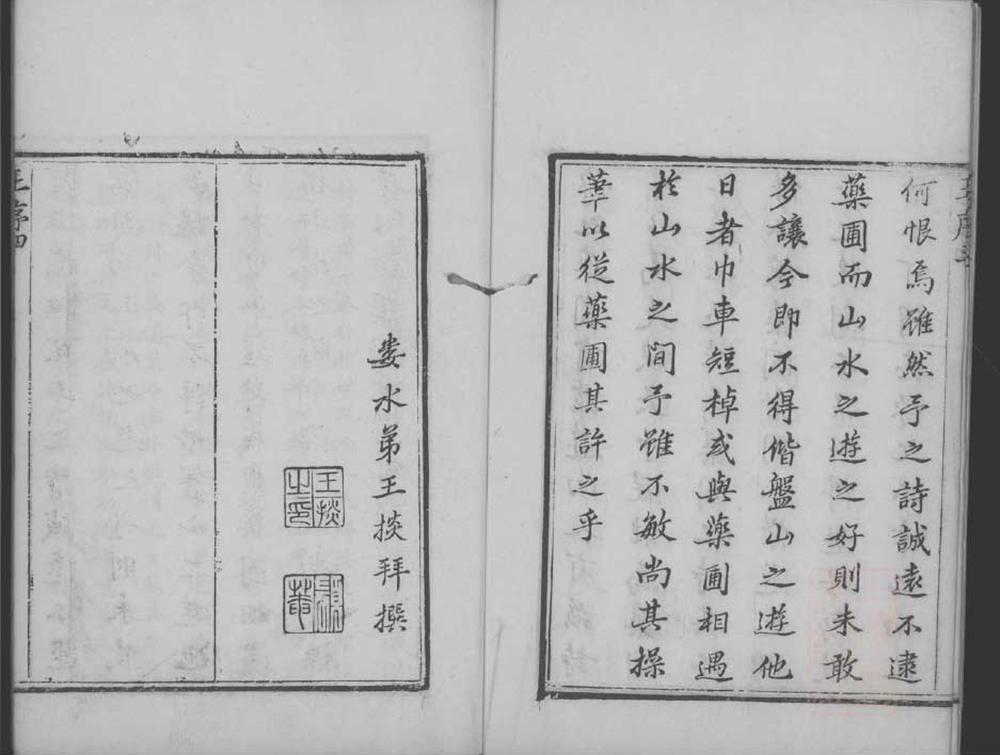 何恨焉雖然予之詩誠遠不逮
藥圃而山水之遊之好則未敢
多讓今即不得偕盤山之遊他
日者巾車短棹或與藥圃相遇
於山水之間予雖不敏尚其操
華以從藥圃其許之乎
婁水弟王掞拜撰
王掞之印
王序四